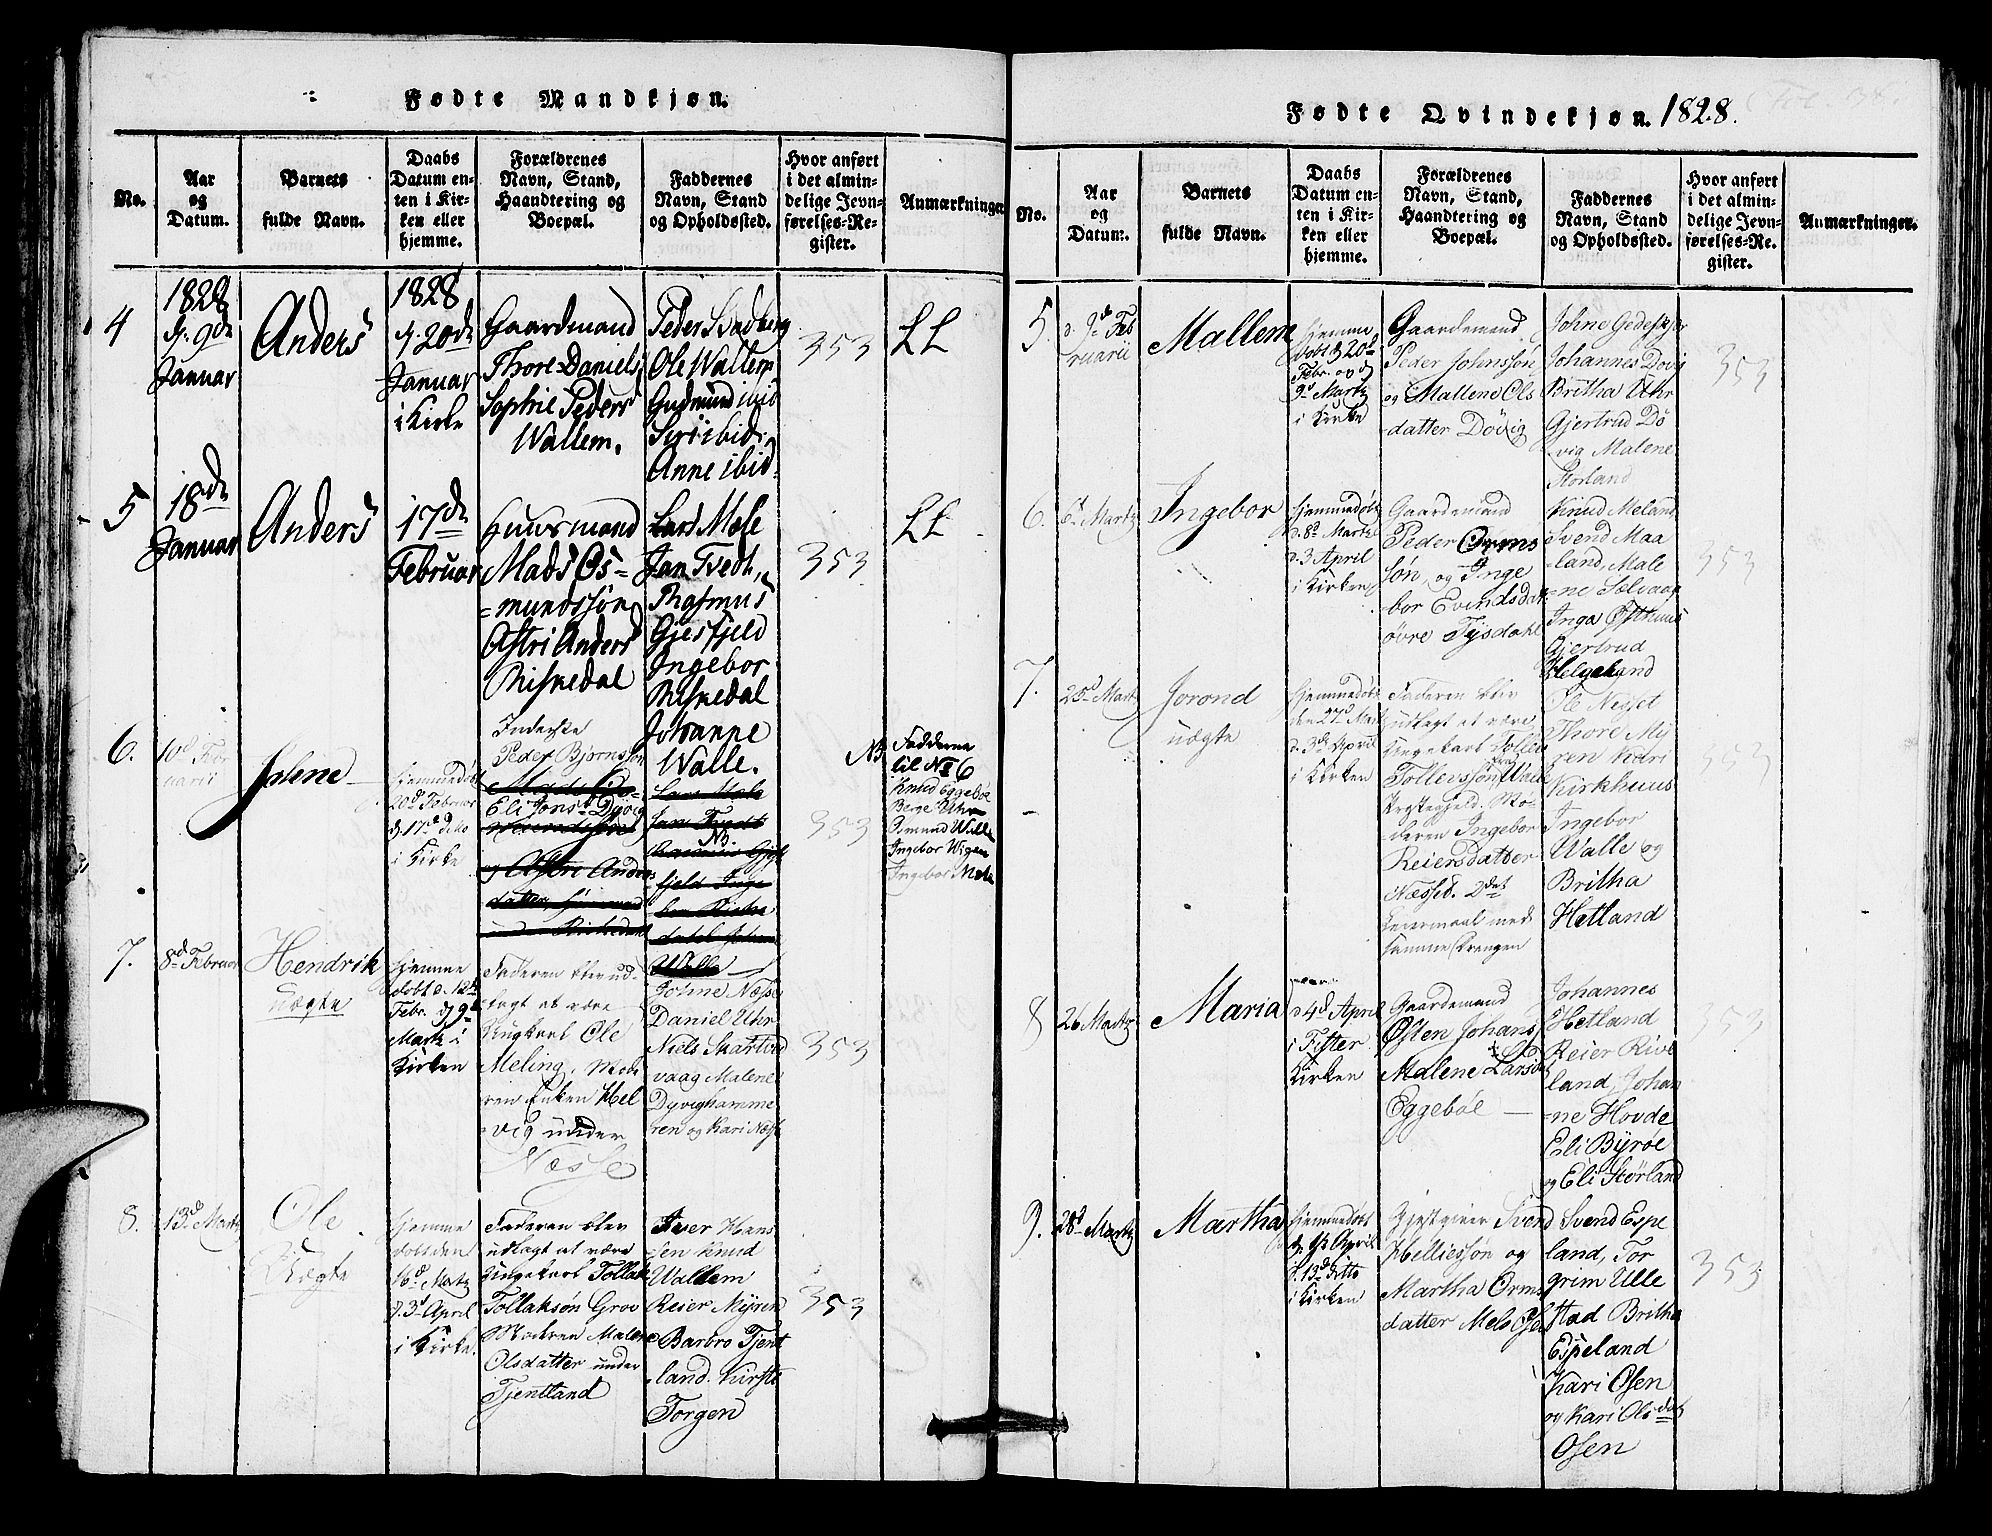 Fødte Mandkjøn.
No.
Aar
og
Datum.
Barnets
fulde Navn.
Daabs
Datum en-
ten i Kir-
ken eller
hjemme.
Forældrenes
Navn, Stand,
Haandtering og
Boepæl.
Faddernes
Navn, Stand
og Opholdssted.
Hvor anført
i det almin-
delige Jevn-
førelses-Re-
gister.
Anmærkninger
4
1828
d. 9de
Januar
Anders
1828
d. 20de
Januar
i Kirke
Gaardmand
Thore Daniels
Sophie Peders
Wallem.
Peder Svadberg
Ole Wallem
Gudmund ibid
Siri ibid.
Anne ibid.
353
LL
5
18de
Januar
Anders
17de
Februar
Huusmand
Mads Os-
=mundssøn
Astri Anders
Riskedal
Lars Mæle
Jan Tvedt,
Rasmus
Gjesfjeld
Ingebor
Riskedal
Johanne
Walle.
353
LL
6.
10d Febr
uarii
Jolene
Hjemmedøbt
20d Februar
d. 17d
i Kirke
Inderste
Peder Bjørnssøn
Eli Jons D. Dyvig
NB
353
NB Fadderne
til No 6
Knud Eggebøe
Berge Uhr
Osmund Wille
Ingebor Wigen
Ingebor Mæle
7.
8d Februar
Hendrik
uægte
Hjemme
døbt d. 12te
Febr. d 9de
Martz i
Kirken
Faderen blev ud-
-lagt at være
Ungkarl Ole
Meling, Mod
ren Enken Hel
-vig under
Næsse
Johne Næsse
Daniel Uhr
Niels Skartved
vaag Malene
Dyvighamme
ren og Kari Næsse
353
8.
13d Martz
Ole
Uægte
Hjemme
døbt den
16d Martz
d. 3d April
i Kirke.
Faderen blev
udlagt at være
Ungekarl Tollak
Tollaksøn Grov
Moderen Malene
Olsdatter under
Tjentland
Iver Hans
sen Knud
Wallem
Reier Myren
Barbro Tjent
-land. Kirsti
Torgen
353
Fødte Qvindekjøn. 1828.
No.
Aar
og
Datum.
Barnets
fulde Navn.
Daabs
Datum en-
ten i Kir-
ken eller
hjemme.
Forældrenes
Navn, Stand,
Haandtering og
Boepæl.
Faddernes
Navn, Stand
og Opholdssted.
Hvor anført
i det almin-
delige Jevn-
førelses-Re-
gister.
Anmærkninger.
5.
d. 9d Feb
ruarii
Mallem
Hjemme
døbt d 20d
Febr. og d
9d Martz
i Kirke
Gaardemand
Peder Johnssøn
og Mallene Ols
-datter Døvig
Johne Gedeskjer
Johannes Dovig
Britha Uhr
Gjertrud Dø
vig Malene
Storland
353
6.
6d Martz
Ingebor
Hjemmedøbt
d. 8d Martz
d. 3 April
i Kirken
Gaardemand
Peder Orms
søn, og Inge
bor Evindsdatt
øvre Tysdahl
Knud Meland
Svend Maa
land, Male
-ne Sælvaag
Inga Østhuus
Gjertrud
Helgeland
353
7.
25d Martz
Jorond
uægte
Hjemmedøbt
den 27d Martz
d. 3de April
i Kirken
Faderen blev
udlagt at være
Ungekarl Tollev
Tollevssøn fra Walle
Præstegjeld. Mo-
deren Ingebor
Reiersdatter
Næssed. 2det
Leiermaal med
samme Drengen
Ole Nesset
Thore My
ren Kari
Kirkhuus
Ingebor
Walle og
Britha
Hetland
353
8
26 Martz
Maria
d 4d April
i Fister
Kirken
Gaardemand
Østen Johans
Malene Larsd
Eggebøe
Johannes
Hetland
Reier Rive
land, Johan
=ne Hovde
Eli Byrøe
og Eli Størland
353
9.
28d Martz
Martha
Hjemmedøbt
d. 1st April
d. 13d ditto
i Kirken
Gjestgiver Svend
Helliessøn og
Martha Orms
datter Mels
Svend Espe
land, Tor
grim Ulle
stad Britha
Espeland
Kari Osen
og Kari Ols dat
Osen
353